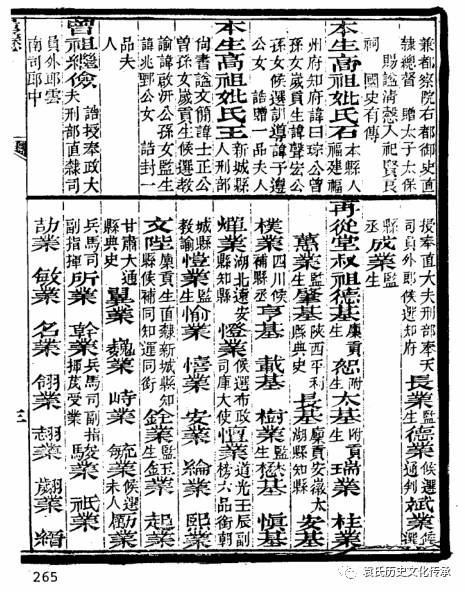 兼都察院右都御史直
隸總督 贈太子太保
賜諡清愨入祀賢良
祠 國史有傳
本生高祖妣氏石 本縣人福建福
州府知府諱曰琮公曾
孫女歲貢生諱聲宏公
孫女候選訓導諱子遵
公女 誥贈一品夫人
本生高祖妣氏王 新城縣人刑部
尚書諡文簡諱士正公
曾孫女歲貢生候選教
諭諱啟沂公孫女監生
諱兆野公女 誥封一
品夫人
曾祖繼儉 誥授奉政大夫刑部直隸司
員外郎雲南司郎中
授奉直大夫刑部奉天司員外郎候選知府 長業監生 德業候選通判 候選
縣丞 成業監生
再從堂叔祖德基廩貢生 恕 太基附貢生 瑞業 桂業
萬業監生 肇基陝西平利縣典史 長基廩貢安徽太湖縣知縣 安基
樸業四川候補縣丞 亨基 載基 樹業監生 懋基 慎基
燡業湖北遠安縣知縣 憕業候選布政司庫大使 恆業道光壬辰副榜六品銜朝
城縣教諭 愷業監生 愉業 憘業 安業 綸業 熙業
文陛廩貢生直隸新城縣知縣候補同知運同銜 銓業監生 玉金業 起業
甘肅大通縣典史 業 巍業 峙業 毓業候選未入 勵業
兵馬司副指揮 所業 幹業兵馬司副指揮 萬受業 駿業 祇業
劼業 敏業 名業 翎業 翹業 翽業 縉
三
265
袁氏历史文化传承